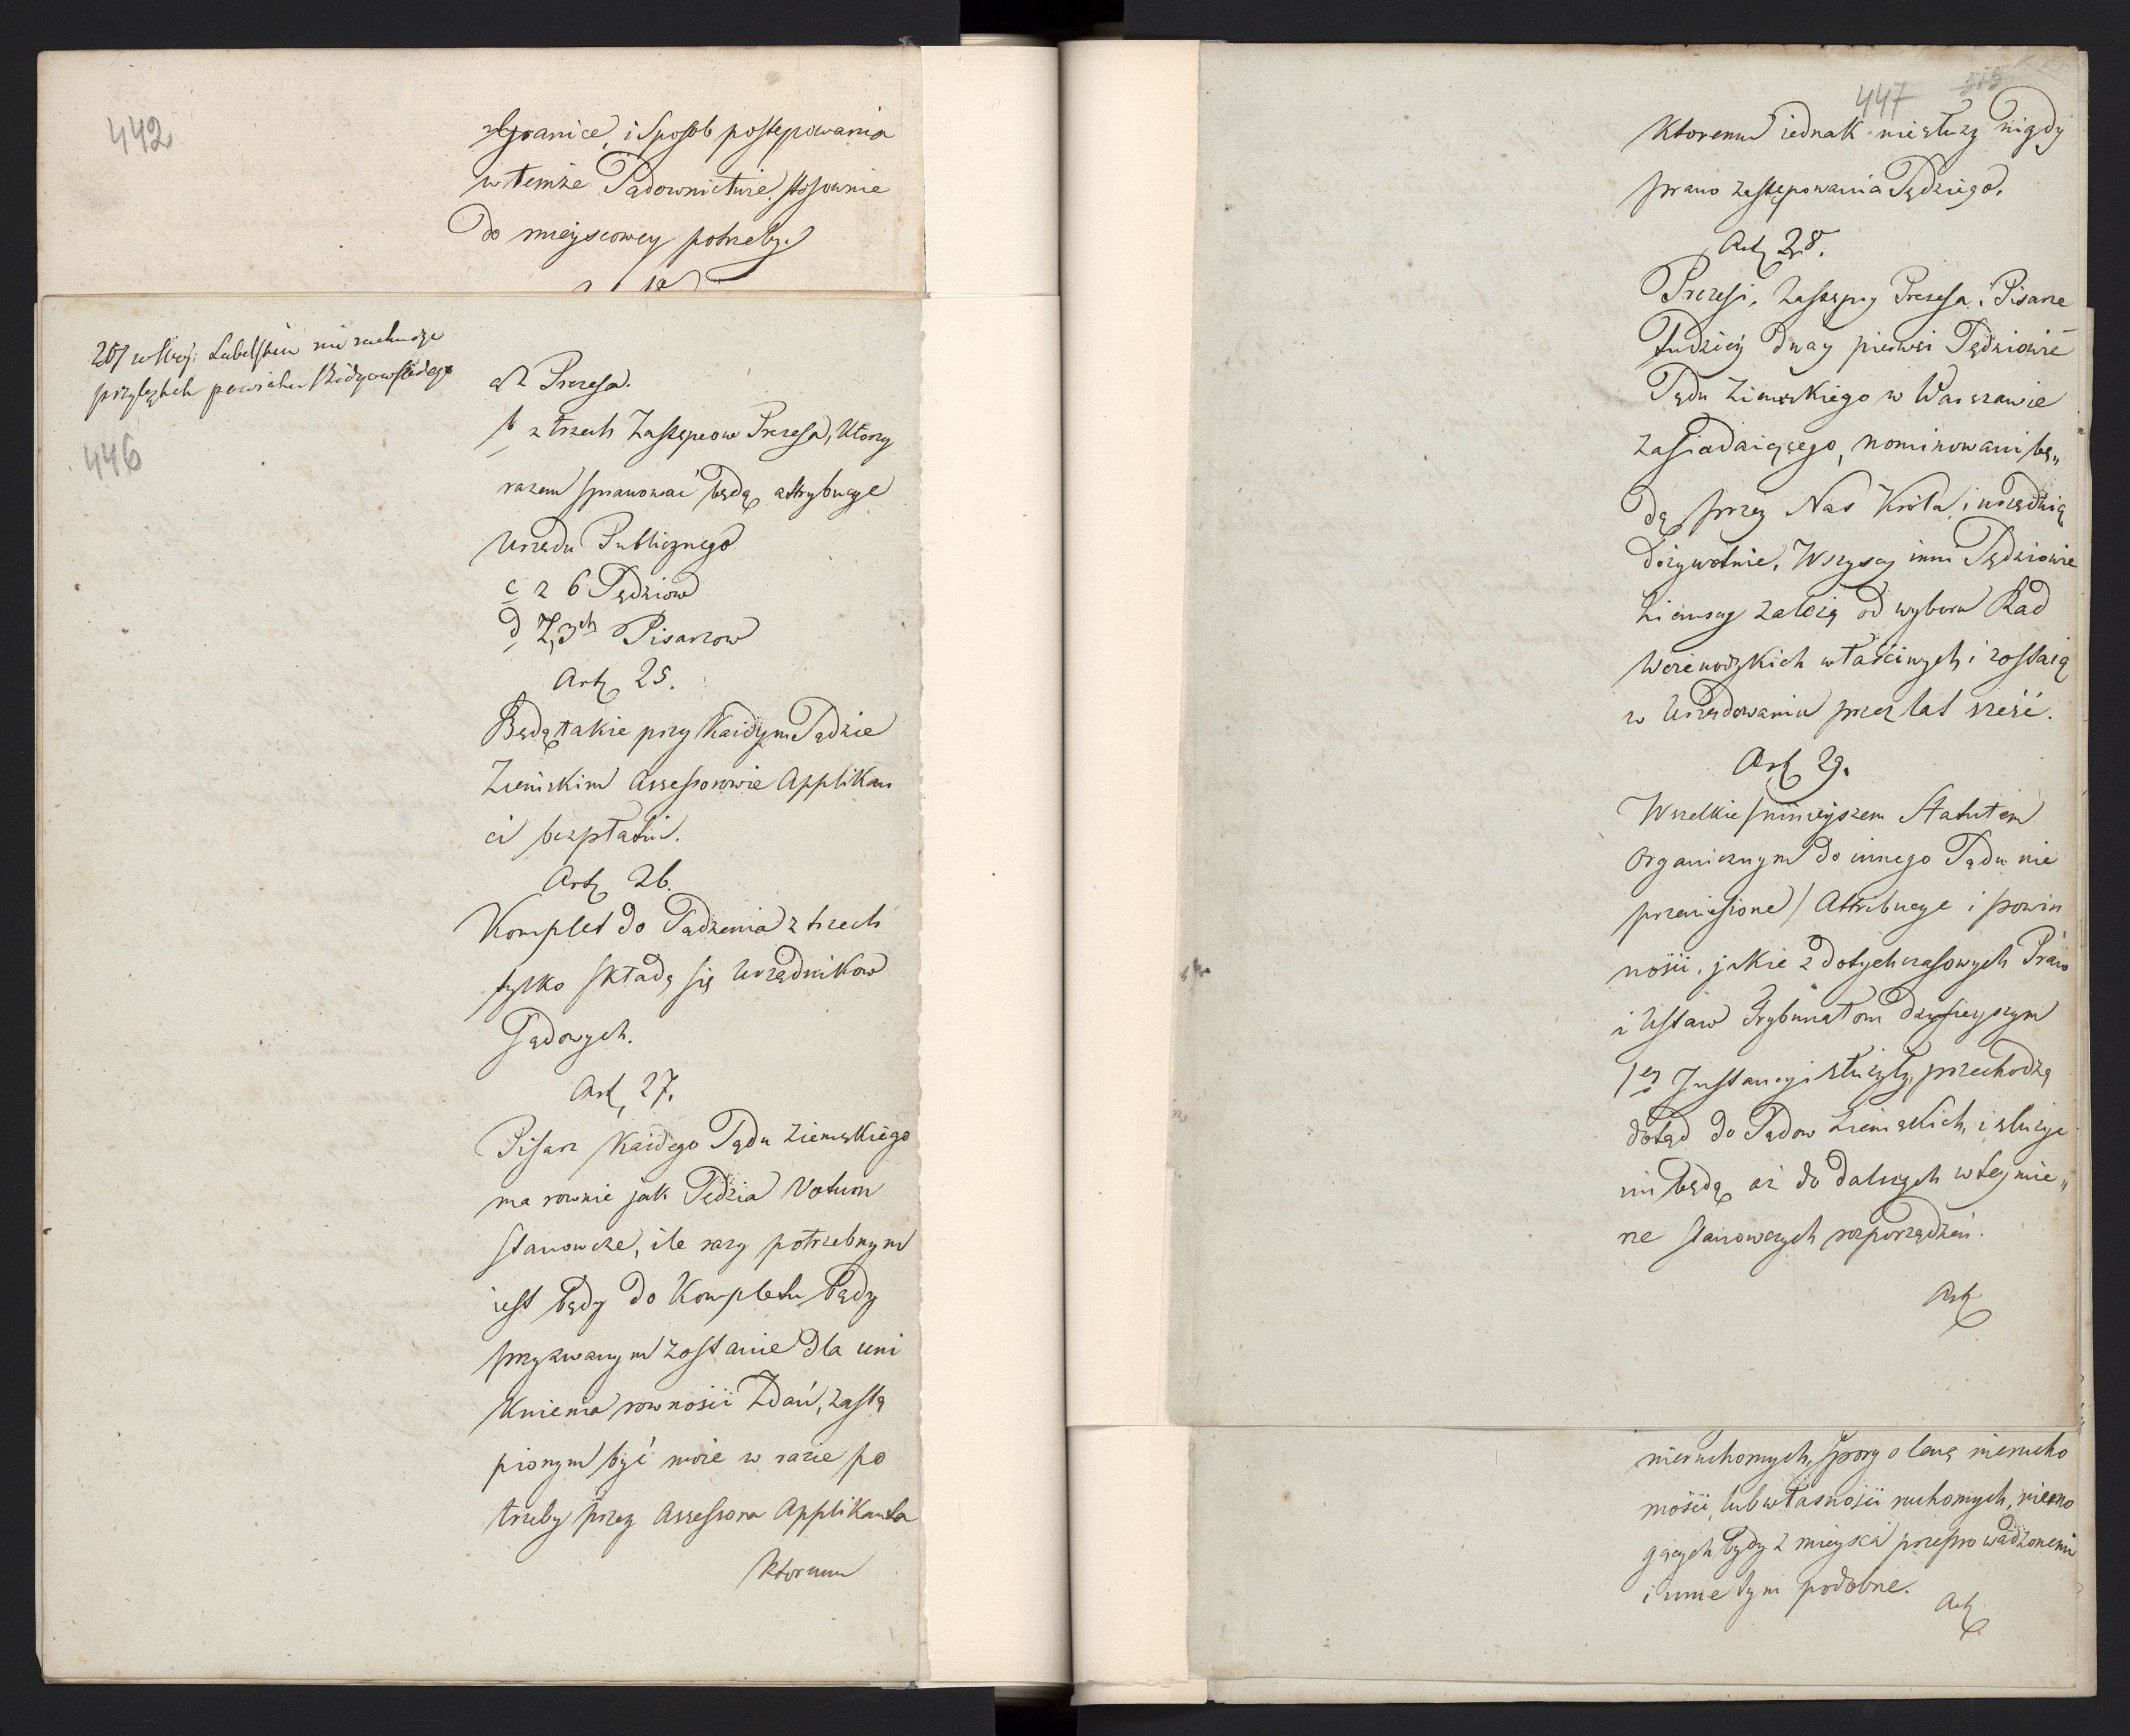 442
Granice, i sposob postępowania
w temże Sądownictwie stosownie
do mieyscowey potrzeby.
Lubelskim nie rachuiąc
przyległych powiatu
446
a z Prezesa.
b z trzech Zastępcow Prezesa, ktorzy
razem sprawować będą attrybucye
Urzędu Publicznego
c z 6 Sędziow
d Z 3ch Pisarzow
Art. 25.
Będą także przy każdym Sądzie
Ziemskim Assessorowie Applikan
ci bezpłatni.
Art. 26.
Komplet do Sądzenia z trzech
tylko składa się Urzędnikow
Sądowych.
Art. 27.
Pisarz każdego Sądu Ziemskiego
ma rownie jak Sędzia Votum
stanowcze, ile razy potrzebnym
iest bądź do Kompletu bądź
przyzwanym zostanie dla uni
knienia rownosci Zdań, zastą
pionym być może w razie po
trzeby przez Assessora Applikanta
ktoremu
447
515
ktoremu iednak niesłuzy nigdy
prawo zastępowania Sędziego.
Art. 28.
Prezesi, Zastępcy Prezesa i Pisarze
tudzież dway pierwsi Sędziowie
Sądu Ziemskiego w Warszawie
zasiadaiącego, nominowani bę„
dą przez Nas Króla, i urzędzią
dożywotnie. Wszyscy inni Sędziowie
Ziemscy zależą od wyboru Rad
Woiewodzkich właściwych i zostaią
w Urzędowaniu przez lat sześć.
Art. 29.
Wszelkie /ninieyszem Statutem
Organicznym do innego Sądu nie
przeniesione/ Attribucye i powin
nosci, jakie z dotychczasowych Praw
i Ustaw Trybunałom dzisieyszym
1ey Instancyi służyły, przechodzą
dotąd do Sądow Ziemskich, i służyć
im będą aż do dalszych w tey mie„
rze stanowczych rozporządzeń.
Art.
nieruchomych, spory o cenę nierucho
mości, lub własności ruchomych, niemo
gących bydź z mieysca przeprowadzonemi
i inne tym podobne.
Art.